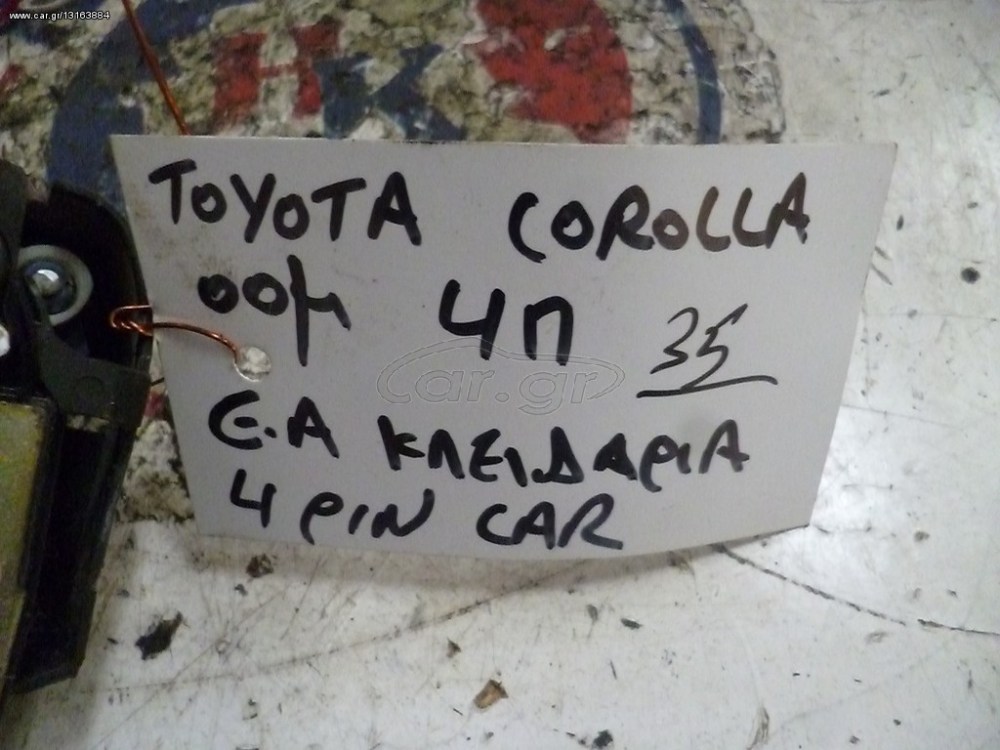 www.car.gr/13163884
HK
TOYOTA COROLLA
00μ 4Π 35
car.gr
Ε.Α ΚΛΕΙΔΑΡΙΑ
4 PIN CAR